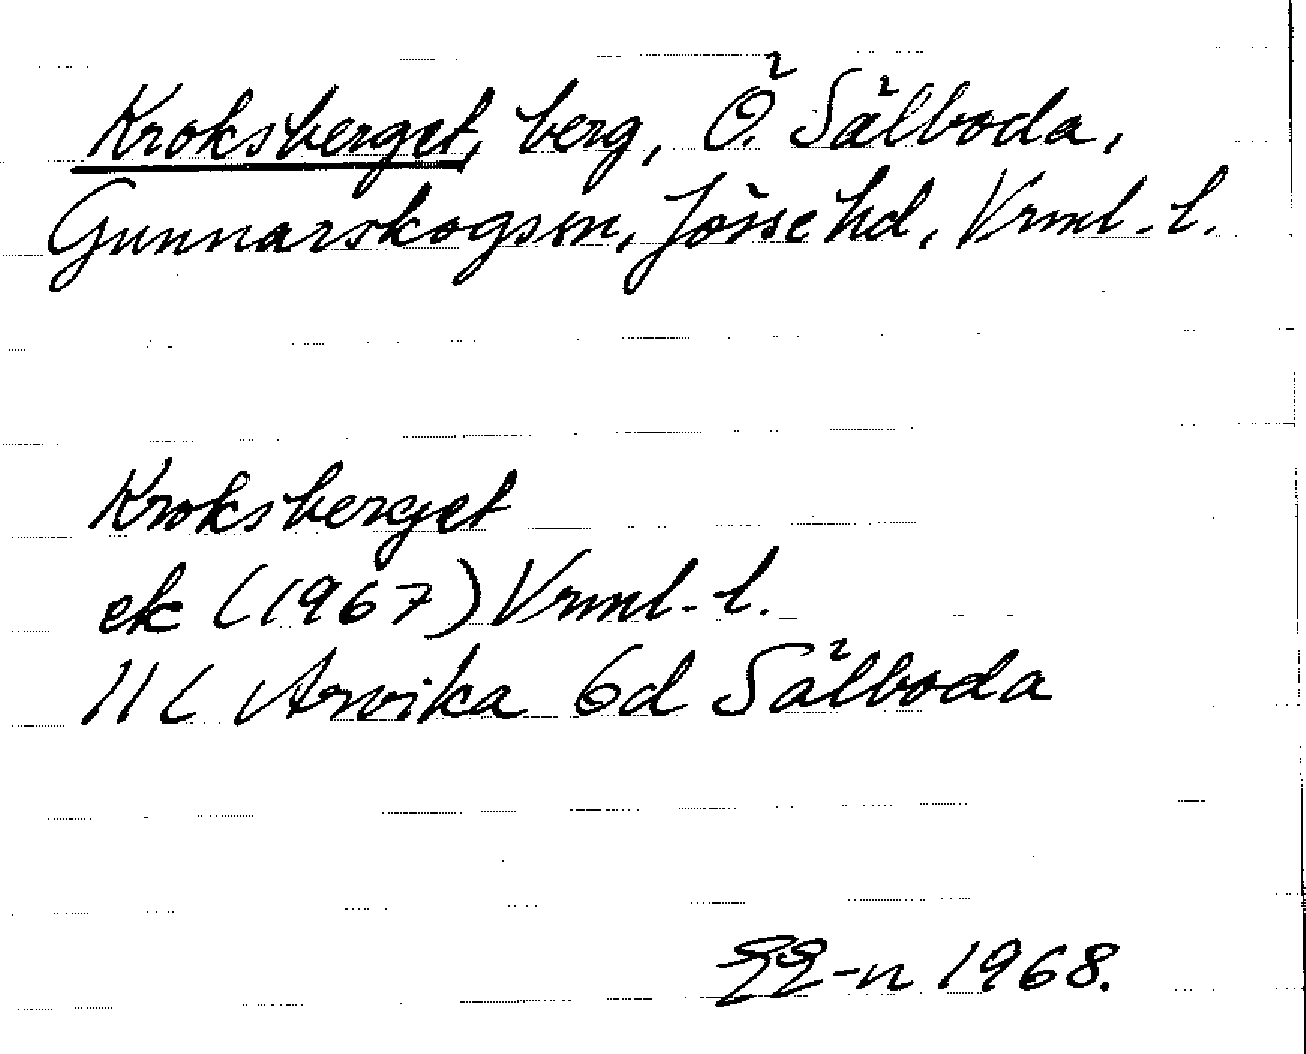 Kroksberget, berg, Ö. Sälboda,
Gunnarskogsn, Jösse hd, Vrml. l.
Kroksberget
ek (1967) Vrml. l.
11C Arvika 6d Sälboda
1968.